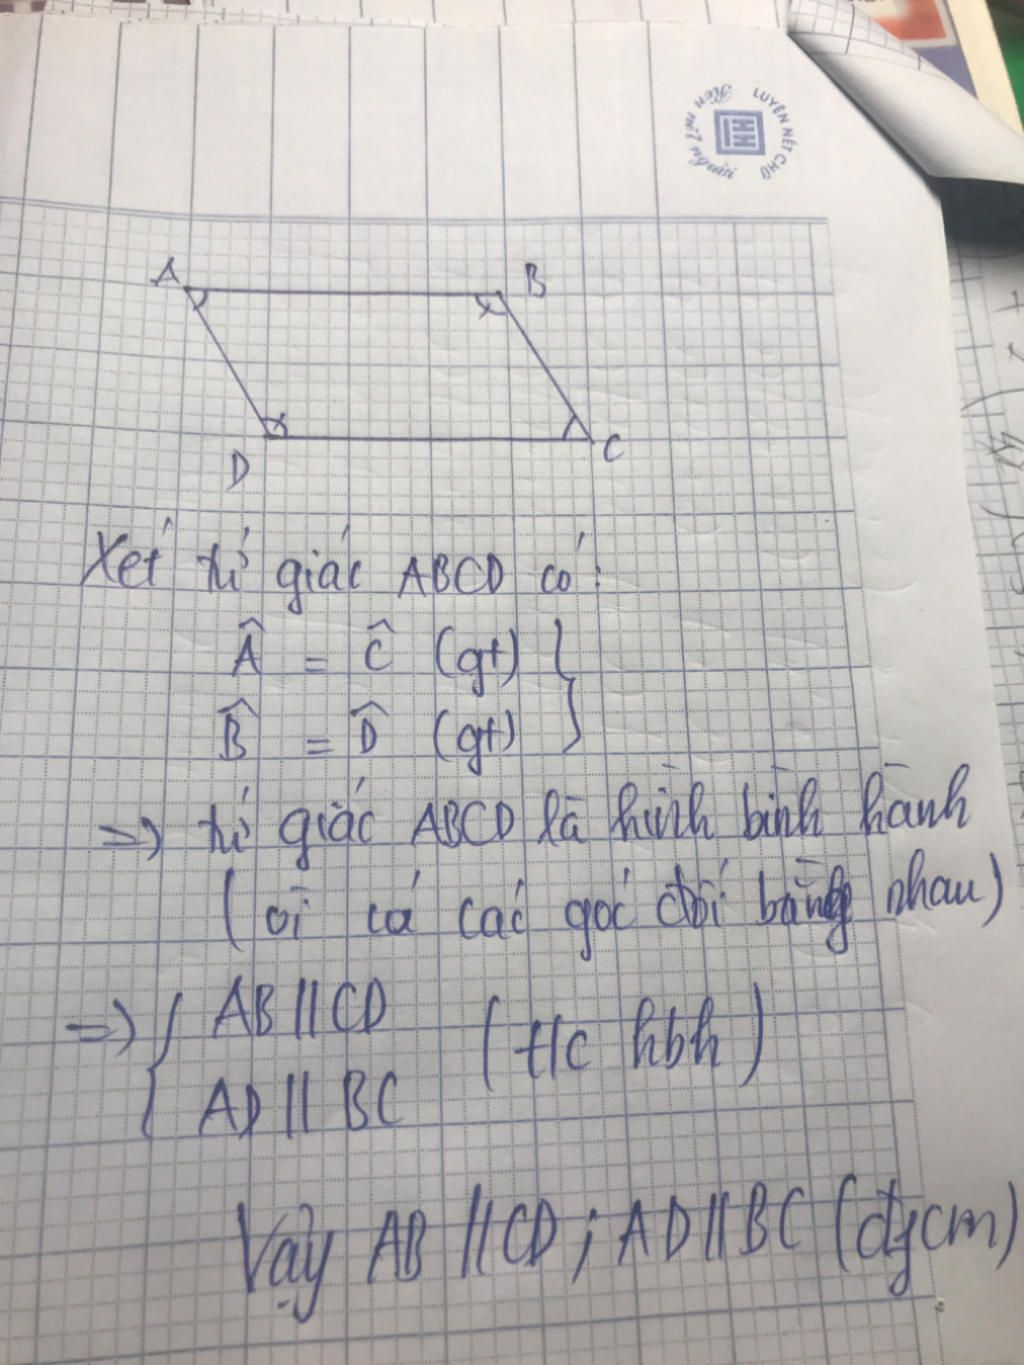 LUYỆN NÉT CHỮ
Rèn nết người
A
B
D
C
Xét tứ giác ABCD có:
Â = Ĉ (gt)
B̂ = D̂ (gt)
=> tứ giác ABCD là hình bình hành
(vì có các góc đối bằng nhau)
=> { AB // CD
AD // BC
(t/c hbh)
Vậy AB // CD ; AD // BC (đpcm)